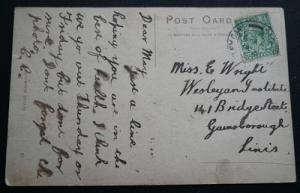 POST CARD
Dear May
Just a line
hoping you are in the
best of health. I think
we go our Thursday or
Friday but dont for
sure. Dont forget the
photo.
E. W.
Miss. E Wright
Wesleyan Institute
141 Bridge Street
Gainsborough
Lincs